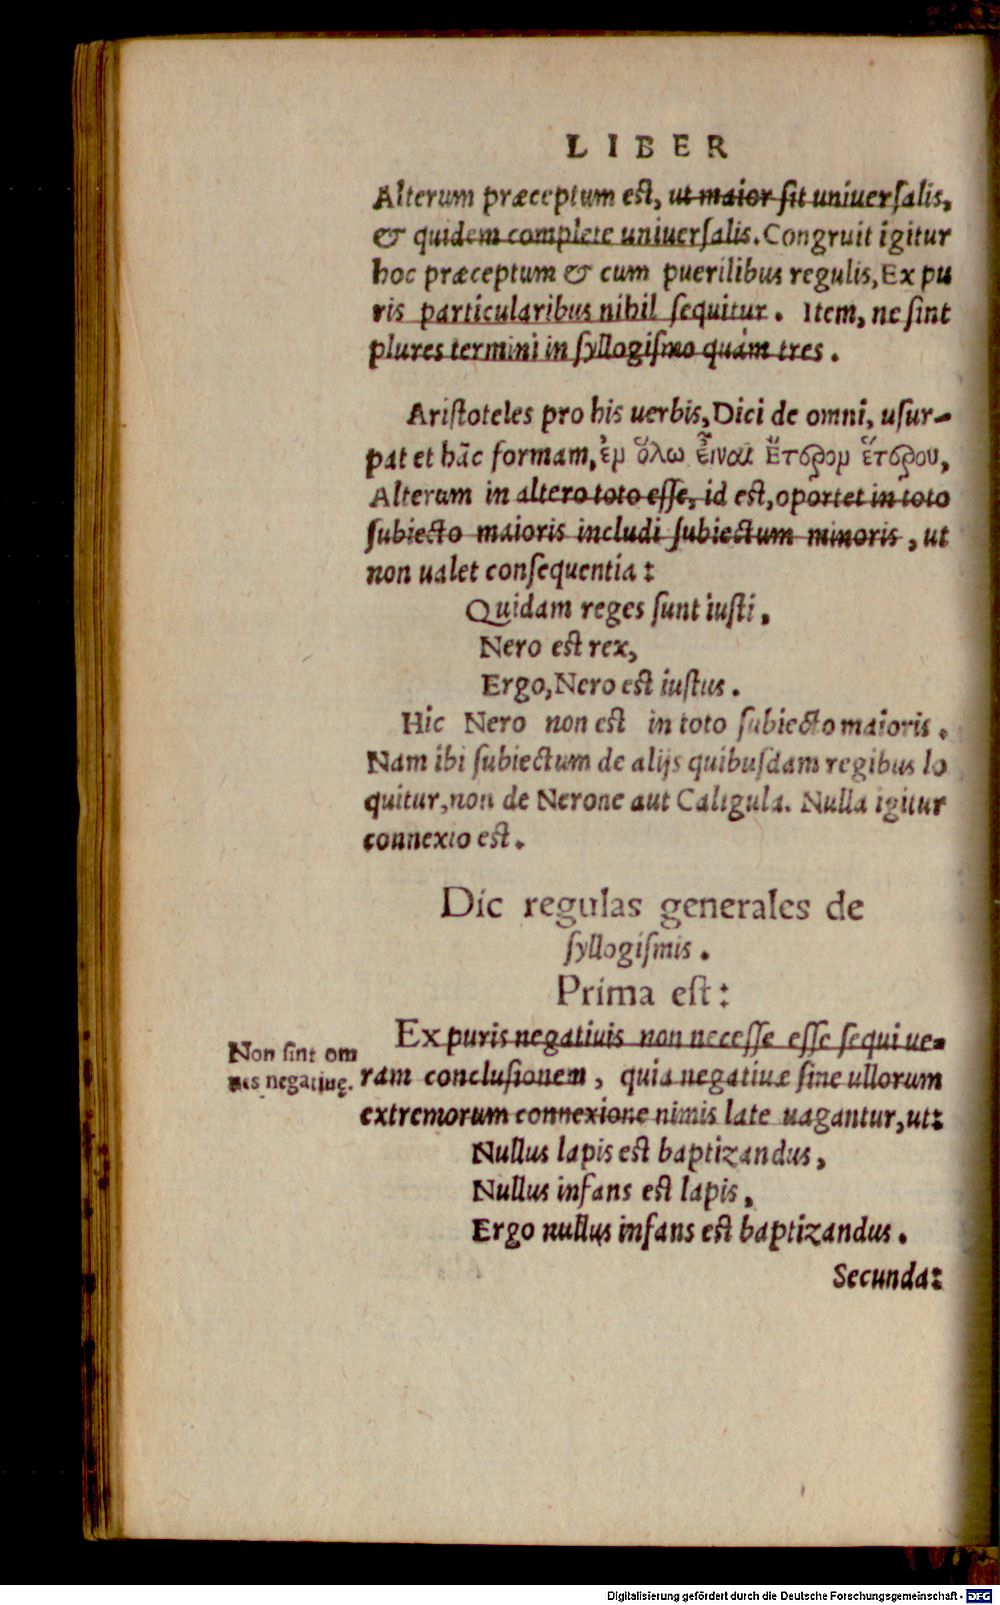 LIBER
Alterum præceptum est, ut maior sit uniuersalis,
& quidem complete uniuersalis. Congruit igitur
hoc præceptum & cum puerilibus regulis, Ex pu
ris particularibus nihil sequitur. Item, ne sint
plures termini in syllogismo quàm tres.
Aristoteles pro his uerbis, Dici de omni, usur-
pat et hãc formam, ἐν ὅλῳ εἶναι ἕτερον ἑτέρου,
Alterum in altero toto esse, id est, oportet in toto
subiecto maioris includi subiectum minoris, ut
non ualet consequentia:
Quidam reges sunt iusti,
Nero est rex,
Ergo, Nero est iustus.
Hic Nero non est in toto subiecto maioris.
Nam ibi subiectum de alijs quibusdam regibus lo
quitur, non de Nerone aut Caligula. Nulla igitur
connexio est.
Dic regulas generales de
syllogismis.
Prima est:
Ex puris negatiuis non necesse esse sequi ue-
ram conclusionem, quia negatiuæ sine ullorum
extremorum connexione nimis late uagantur, ut:
Non sint om
nes negatiuę.
Nullus lapis est baptizandus,
Nullus infans est lapis,
Ergo nullus infans est baptizandus.
Secunda:
Digitalisierung gefördert durch die Deutsche Forschungsgemeinschaft - DFG